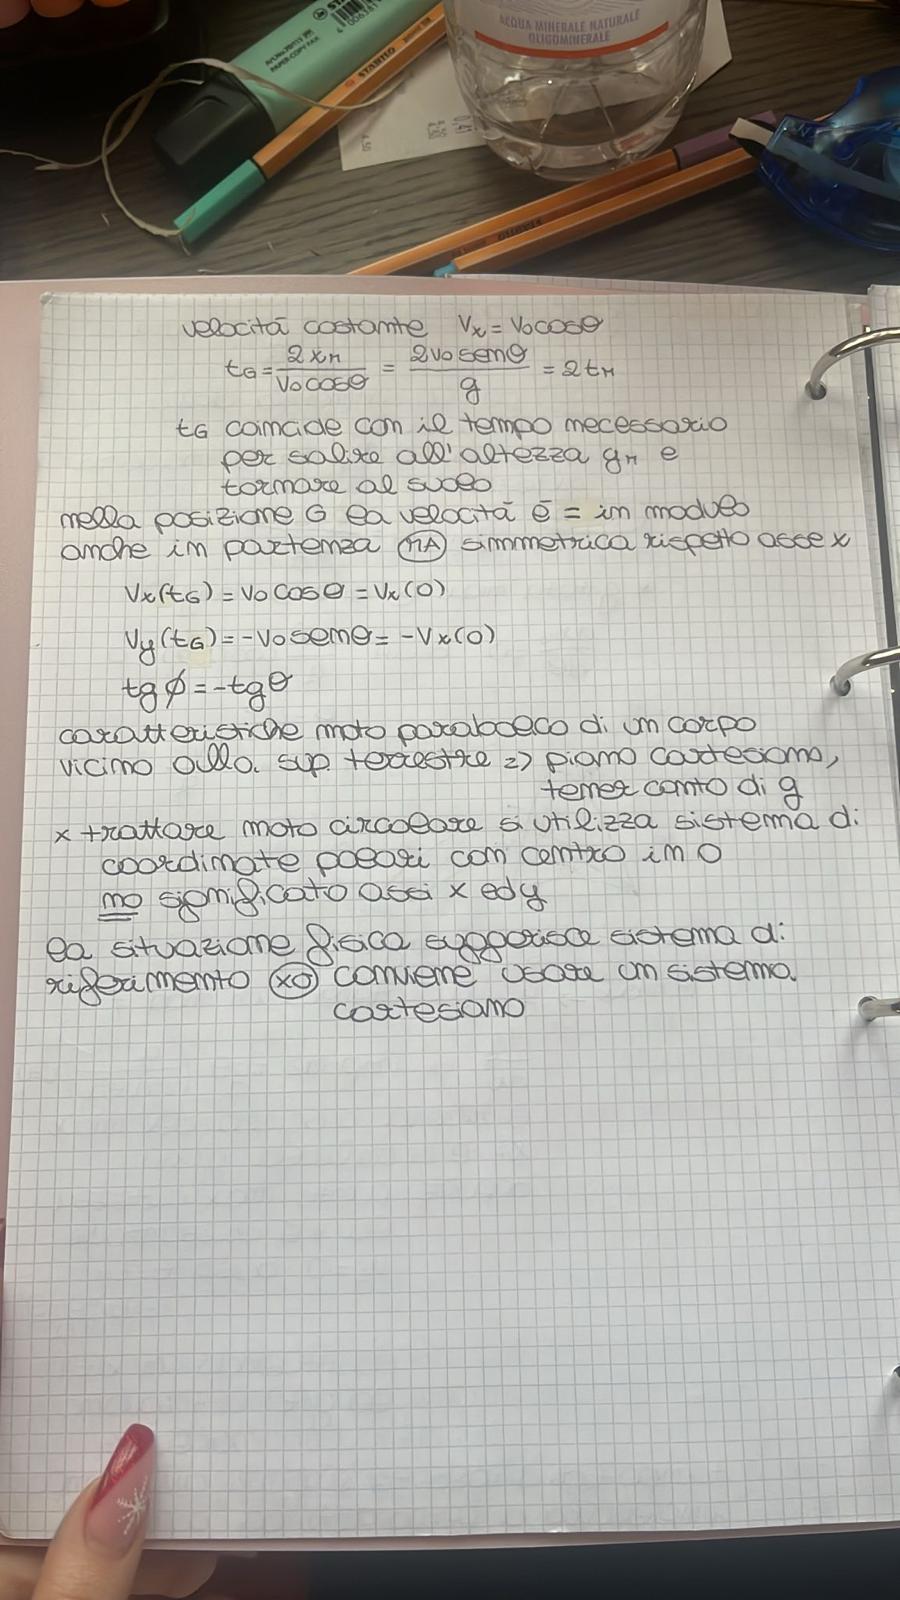 ACQUA MINERALE NATURALE
OLIGOMINERALE
STABILO
velocità costante Vx = V0 cosθ
tG = 2xM / V0 cosθ = 2V0 senθ / g = 2tM
tG coincide con il tempo necessario
per salire all'altezza yM e
tornare al suolo
nella posizione G la velocità è = in modulo
anche in partenza MA simmetrica rispetto asse x
Vx(tG) = V0 cosθ = Vx(0)
Vy(tG) = -V0 senθ = -Vx(0)
tg ϕ = -tg θ
caratteristiche moto parabolico di un corpo
vicino alla sup. terrestre => piano cartesiano,
tener conto di g
x trattare moto circolare si utilizza sistema di
coordinate polari con centro in O
no significato assi x ed y
la situazione fisica suggerisce sistema di
riferimento xO conviene usare un sistema
cartesiano